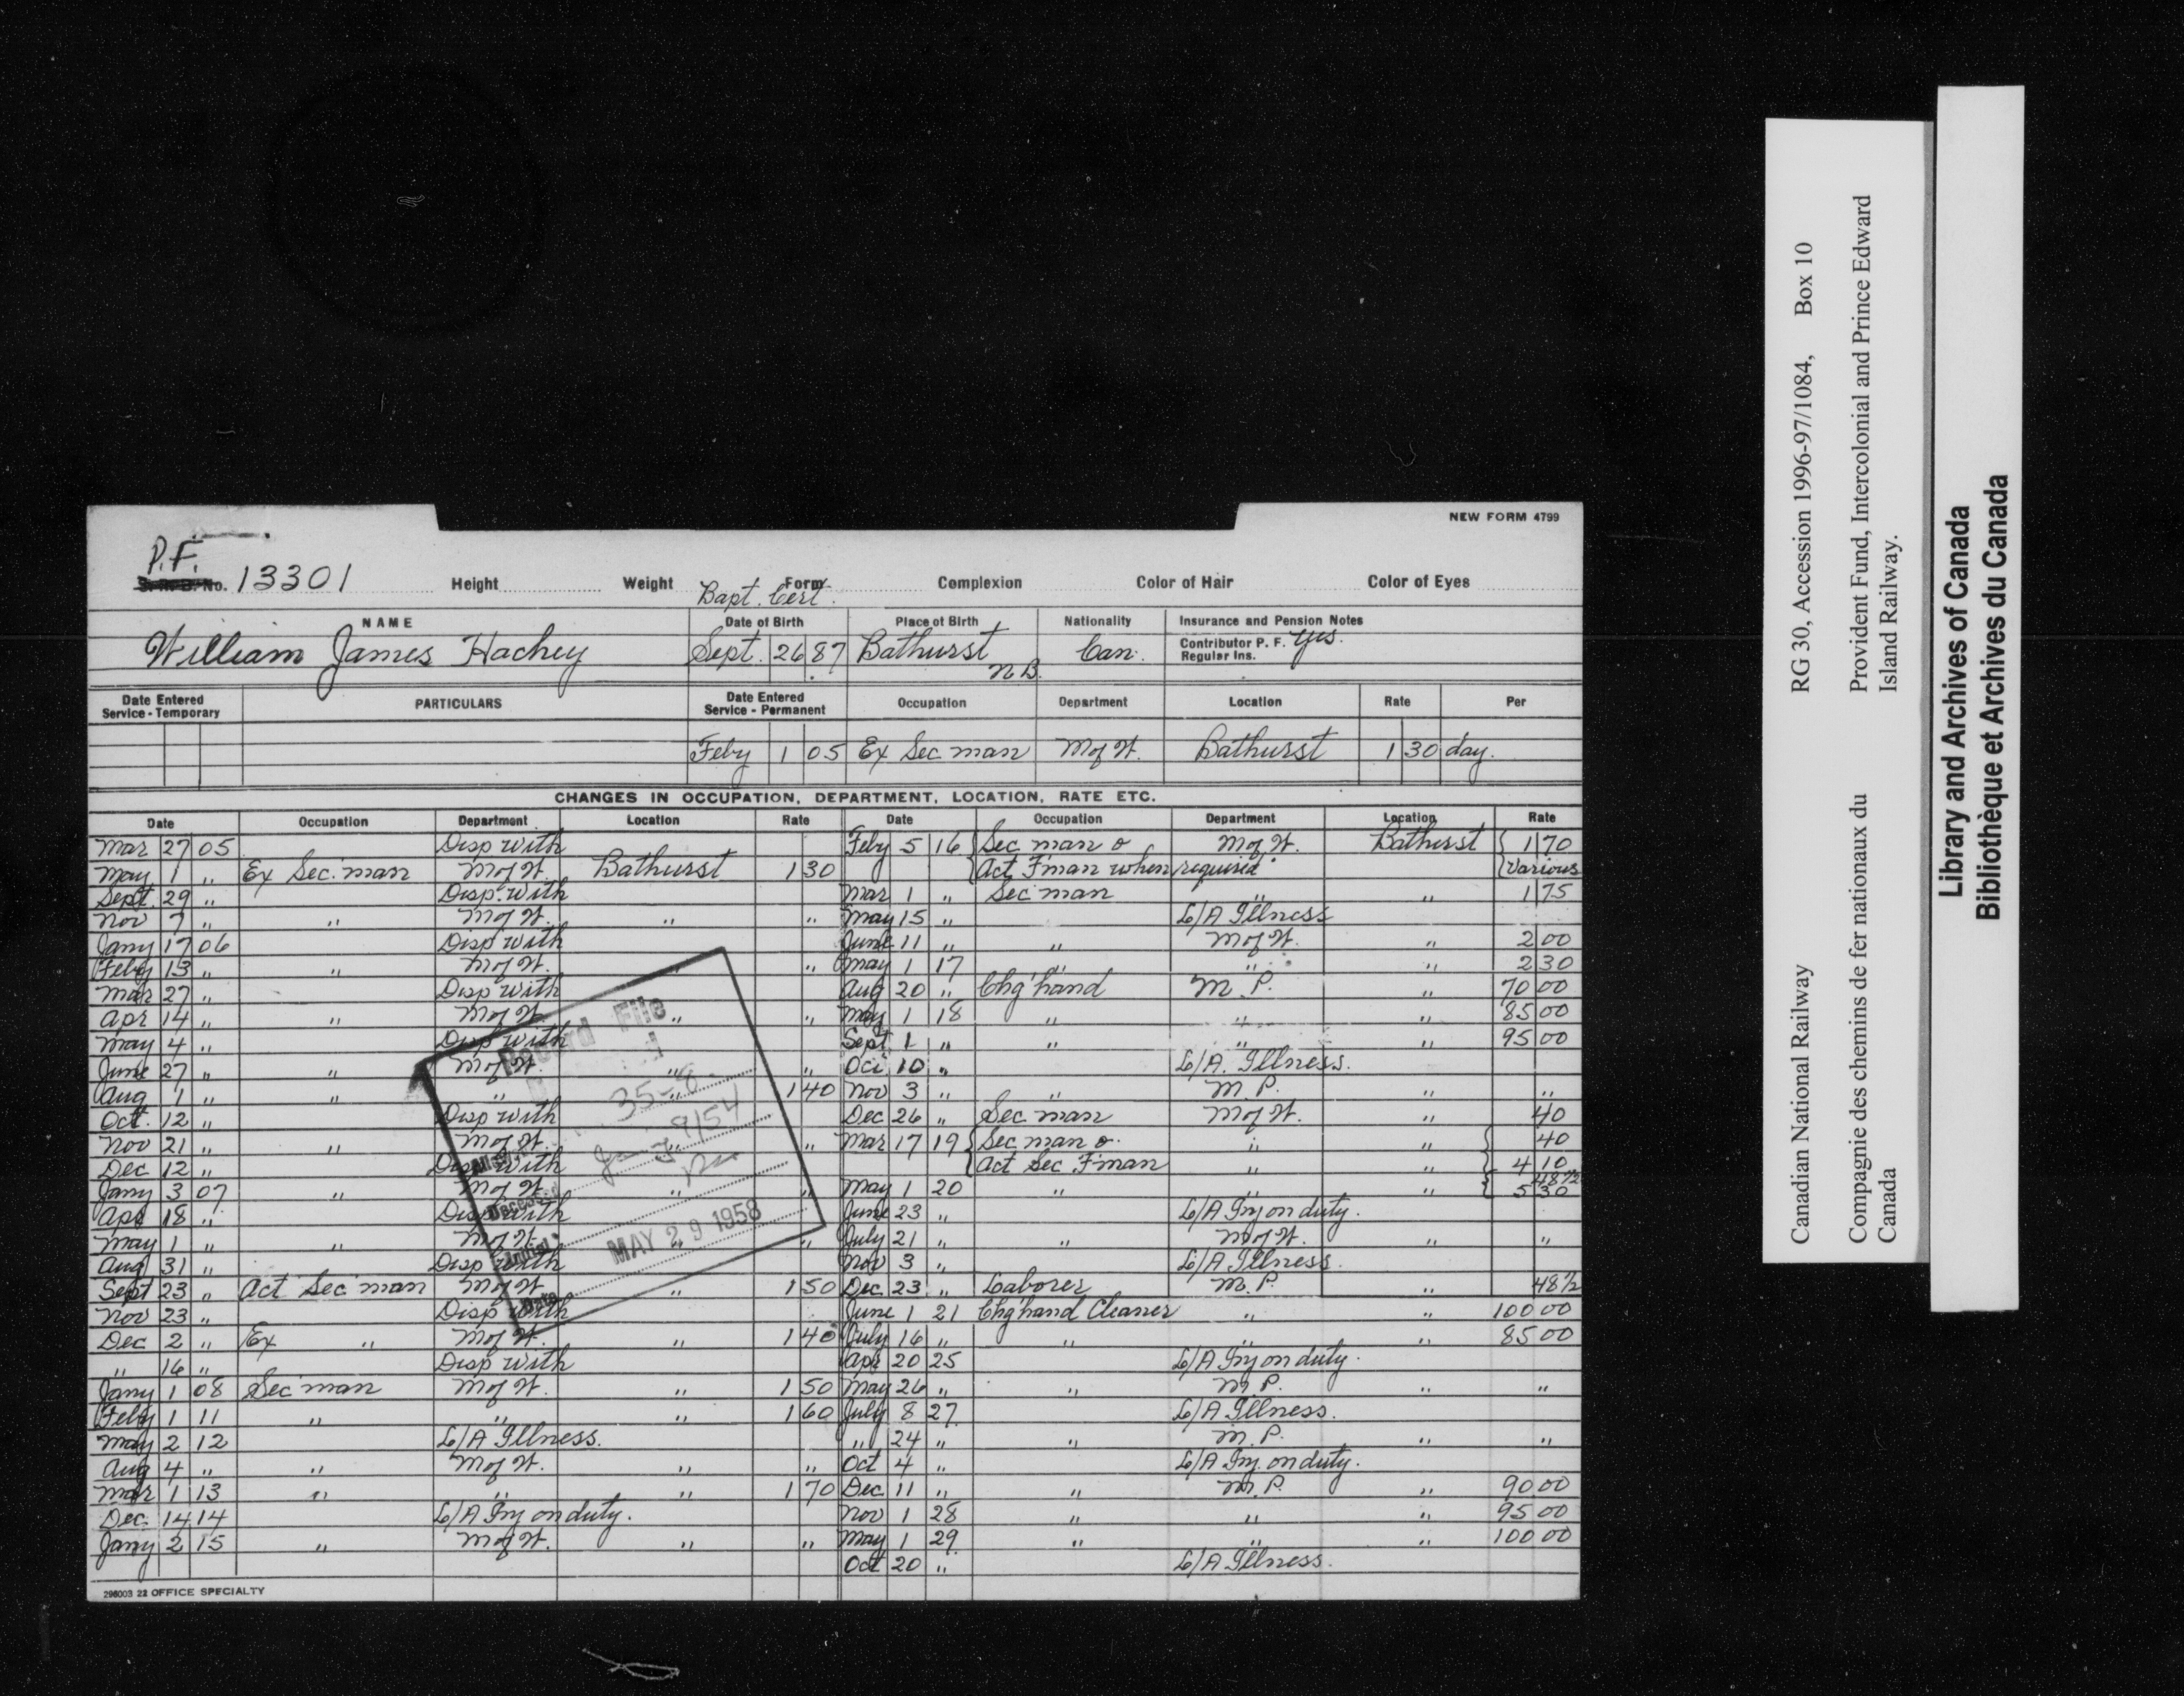 NEW FORM 4799
P.F.
S.R.B. No. 13301 Height Weight Form Complexion Color of Hair Color of Eyes
Bapt. Cert.
NAME Date of Birth Place of Birth Nationality Insurance and Pension Notes
William James Hachey Sept. 26 87 Bathurst N.B. Can. Contributor P. F. Yes.
Regular Ins.
Date Entered Service - Temporary PARTICULARS Date Entered Service - Permanent Occupation Department Location Rate Per
Feby 1 05 Ex Sec man M of W. Bathurst 1 30 day.
CHANGES IN OCCUPATION, DEPARTMENT, LOCATION, RATE ETC.
Date Occupation Department Location Rate
Mar 27 05 Disp with
May 1 " Ex Sec. man M of W. Bathurst 1 30
Sept. 29 " Disp. with
Nov 7 " " M of W. " "
Jany 17 06 Disp with
Feby 13 " " M of W. " "
Mar 27 " Disp with
Apr 14 " " M of W. " "
May 4 " Disp with
June 27 " " M of W. " "
Aug 1 " " " 1 40
Oct. 12 " Disp with
Nov 21 " " M of W. " "
Dec 12 " Disp with
Jany 3 07 " M of W. " "
Apr 18 " Disp with
May 1 " " M of W. " "
Aug 31 " Disp with
Sept 23 " Act Sec man M of W. " 1 50
Nov 23 " Disp with
Dec 2 " Ex " M of W. " 1 40
" 16 " Disp with
Jany 1 08 Sec man M of W. " 1 50
Feby 1 11 " " " 1 60
May 2 12 L/A Illness.
Aug 4 " " M of W. " "
Mar 1 13 " " " 1 70
Dec. 14 14 L/A Inj on duty.
Jany 2 15 " M of W. " "
Date Occupation Department Location Rate
Feby 5 16 Sec man & M of W. Bathurst 1 70
Act F'man when required Various
Mar 1 " Sec man " " 1 75
May 15 " L/A Illness
June 11 " " M of W. " 2 00
May 1 17 " " " 2 30
Aug 20 " Chg'hand M. P. " 70 00
May 1 18 " " " 85 00
Sept 1 " " " " 95 00
Oct 10 " L/A. Illness.
Nov 3 " " M. P. " "
Dec 26 " Sec man M of W. " 40
Mar 17 19 Sec man & " " 40
Act Sec F'man " " 4 10
May 1 20 " " " 48 1/2
5 30
June 23 " L/A Inj on duty.
July 21 " " M of W. " "
Nov 3 " L/A Illness.
Dec. 23 " Laborer M. P. " 48 1/2
June 1 21 Chg'hand Cleaner " " 100 00
July 16 " " " " 85 00
Apr 20 25 L/A Inj on duty.
May 26 " " M. P. " "
July 8 27 L/A Illness.
" 24 " " M. P. " "
Oct 4 " L/A Inj. on duty.
Dec 11 " " M. P. " 90 00
Nov 1 28 " " " 95 00
May 1 29 " " " 100 00
Oct 20 " L/A Illness.
Record File
35-8
MAY 29 1958
Date
296003 22 OFFICE SPECIALTY
Canadian National Railway RG 30, Accession 1996-97/1084, Box 10
Compagnie des chemins de fer nationaux du Canada
Provident Fund, Intercolonial and Prince Edward Island Railway.
Library and Archives of Canada
Bibliothèque et Archives du Canada